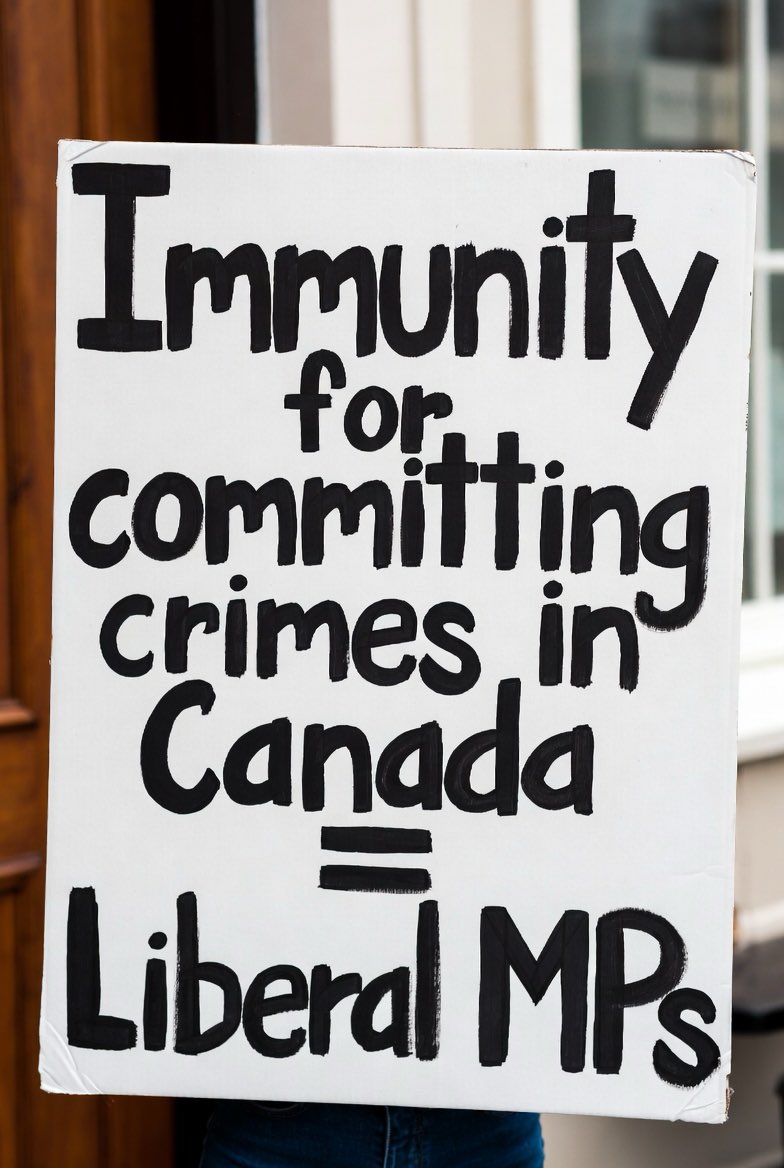 Immunity
for
committing
crimes in
Canada
=
Liberal MPs